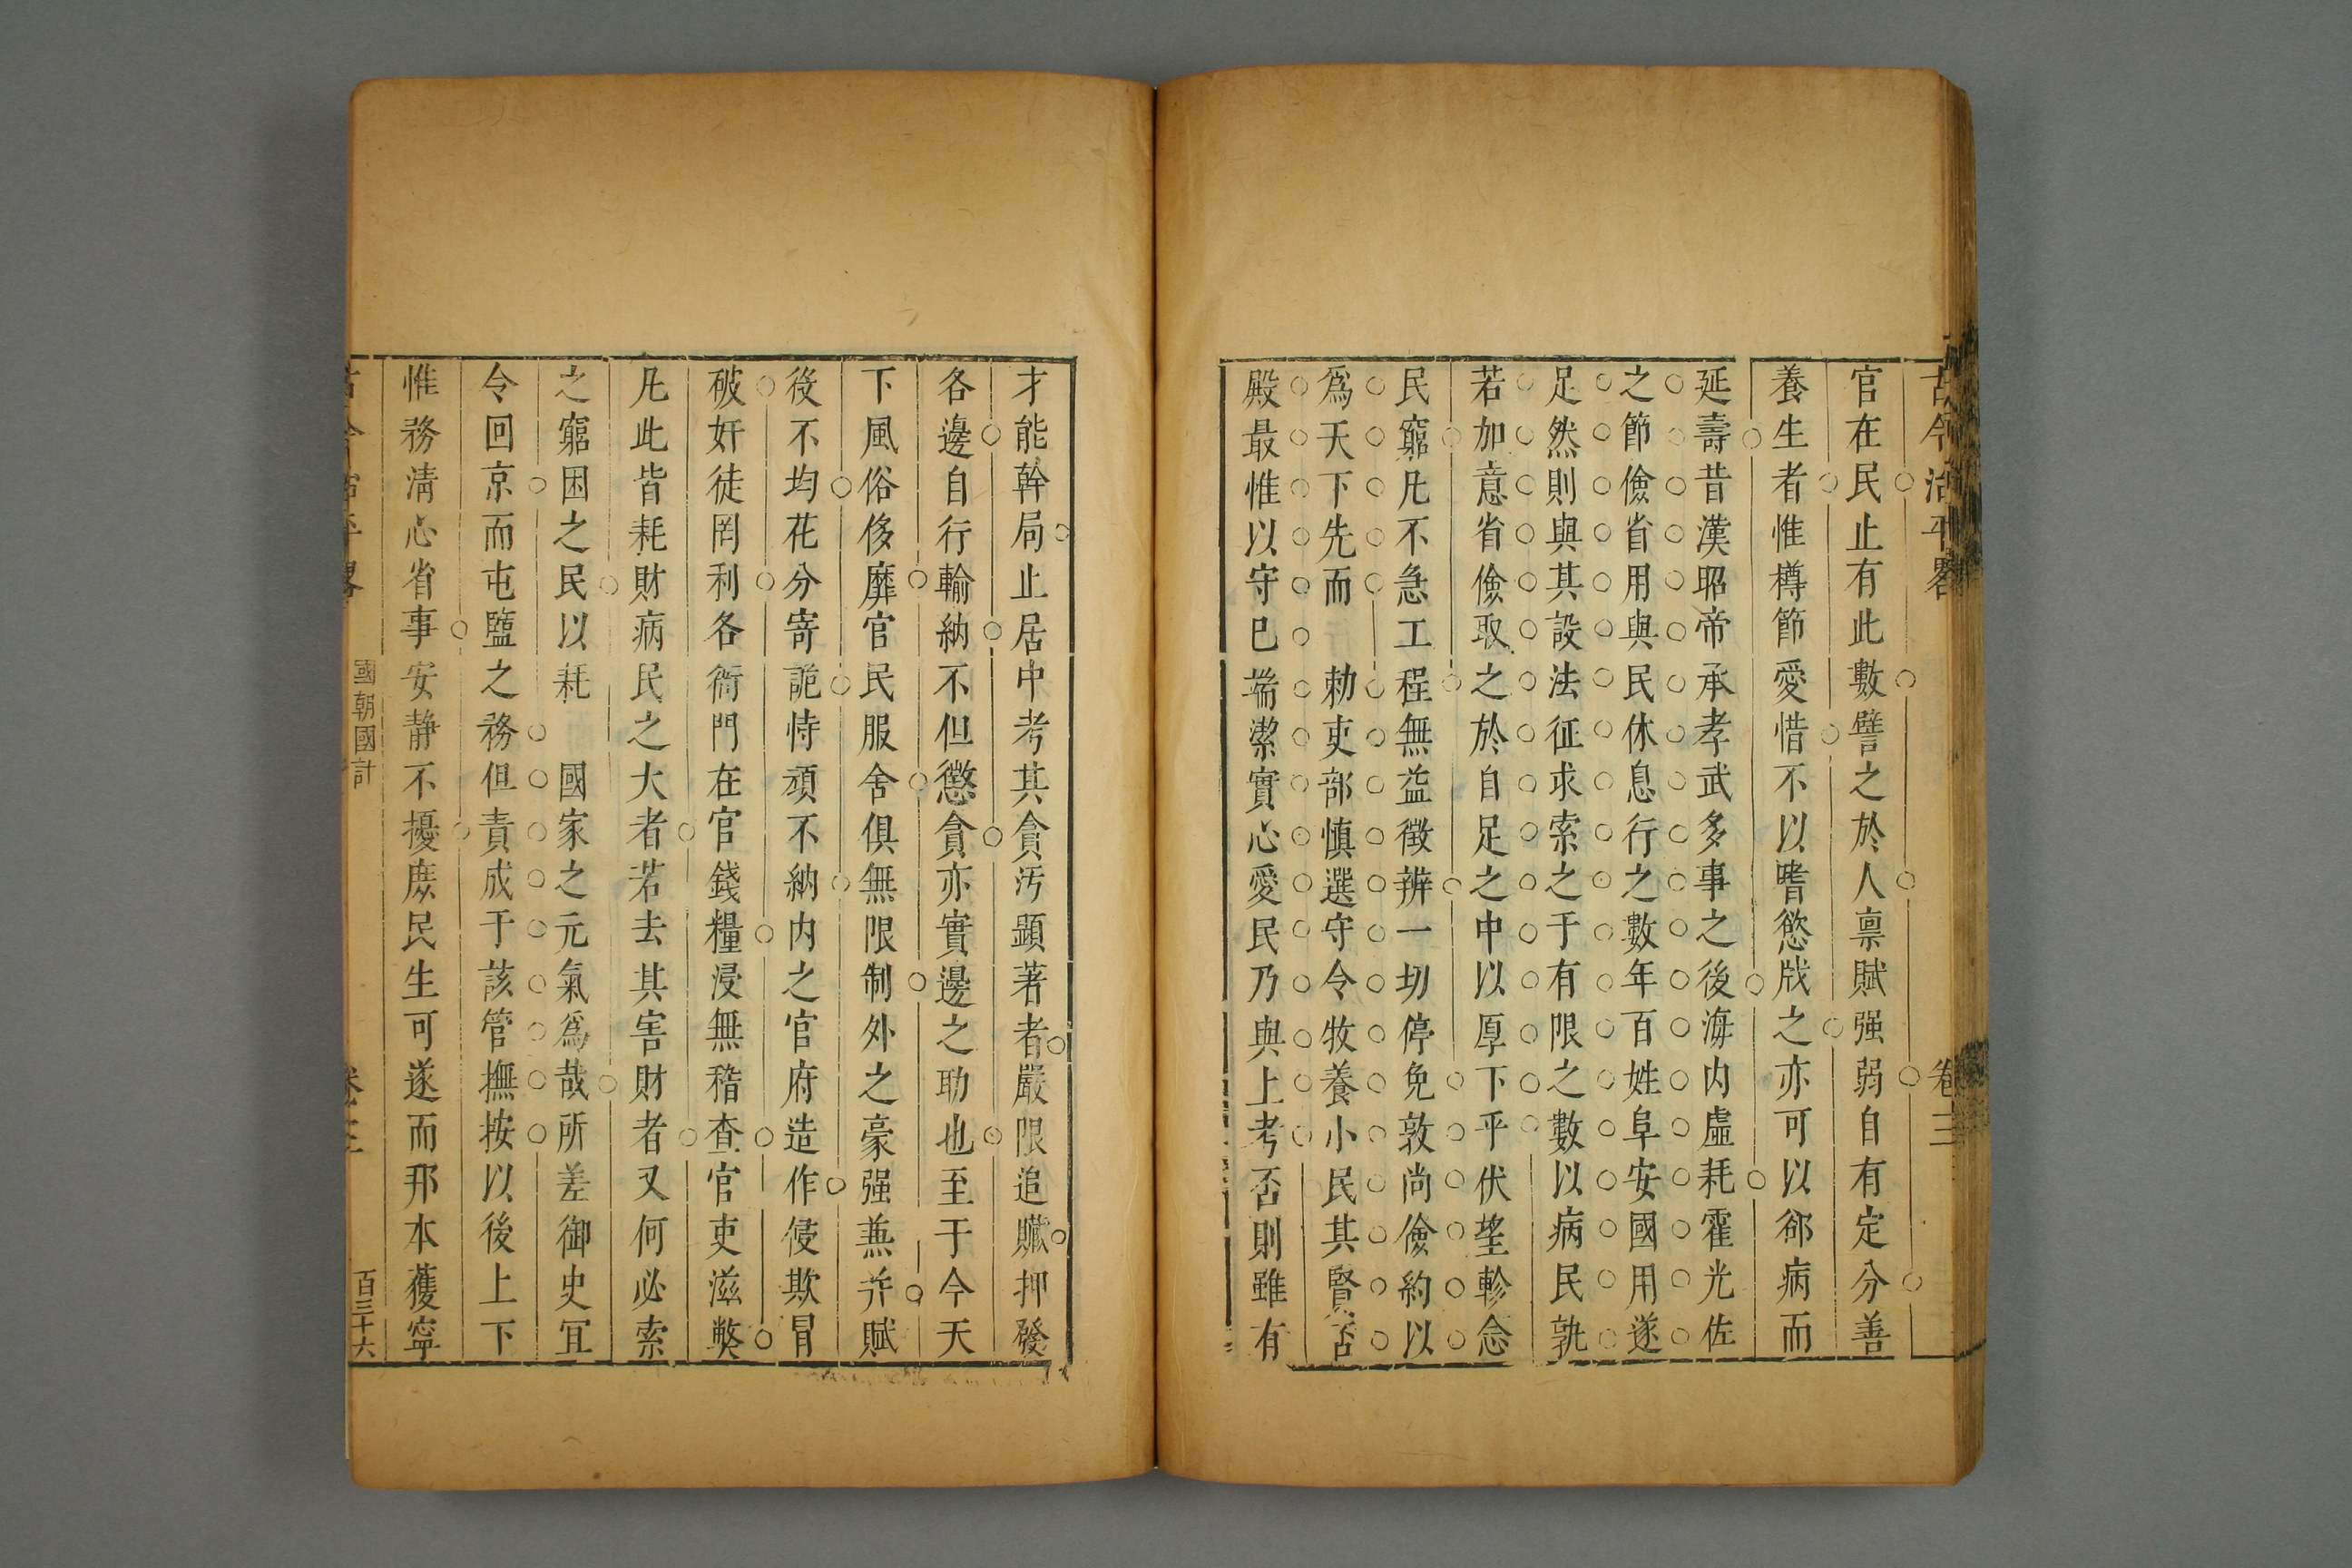 古今治平畧
卷三
官在民止有此數譬之於人禀賦强弱自有定分善
養生者惟樽節愛惜不以嗜慾戕之亦可以郤病而
延壽昔漢昭帝承孝武多事之後海内虛耗霍光佐
之節儉省用與民休息行之數年百姓阜安國用遂
足然則與其設法征求索之于有限之數以病民孰
若加意省儉取之於自足之中以厚下乎伏望軫念
民窮凡不急工程無益徵辦一切停免敦尚儉約以
爲天下先而勅吏部慎選守令牧養小民其賢否
殿最惟以守已端潔實心愛民乃與上考否則雖有
才能幹局止居中考其貪汚顕著者嚴限追贓押發
各邊自行輸納不但懲貪亦實邊之助也至于今天
下風俗侈靡官民服舍俱無限制外之豪强兼并賦
役不均花分寄詭恃頑不納内之官府造作侵欺冒
破奸徒罔利各衙門在官錢糧浸無稽查官吏滋獘
凡此皆耗財病民之大者若去其害財者又何必索
之窮困之民以耗國家之元氣爲哉所差御史冝
令回京而屯鹽之務但責成于該管撫按以後上下
惟務淸心省事安靜不擾庶民生可遂而邦本獲寧
古今治平畧
國朝國計
卷三
百三十六